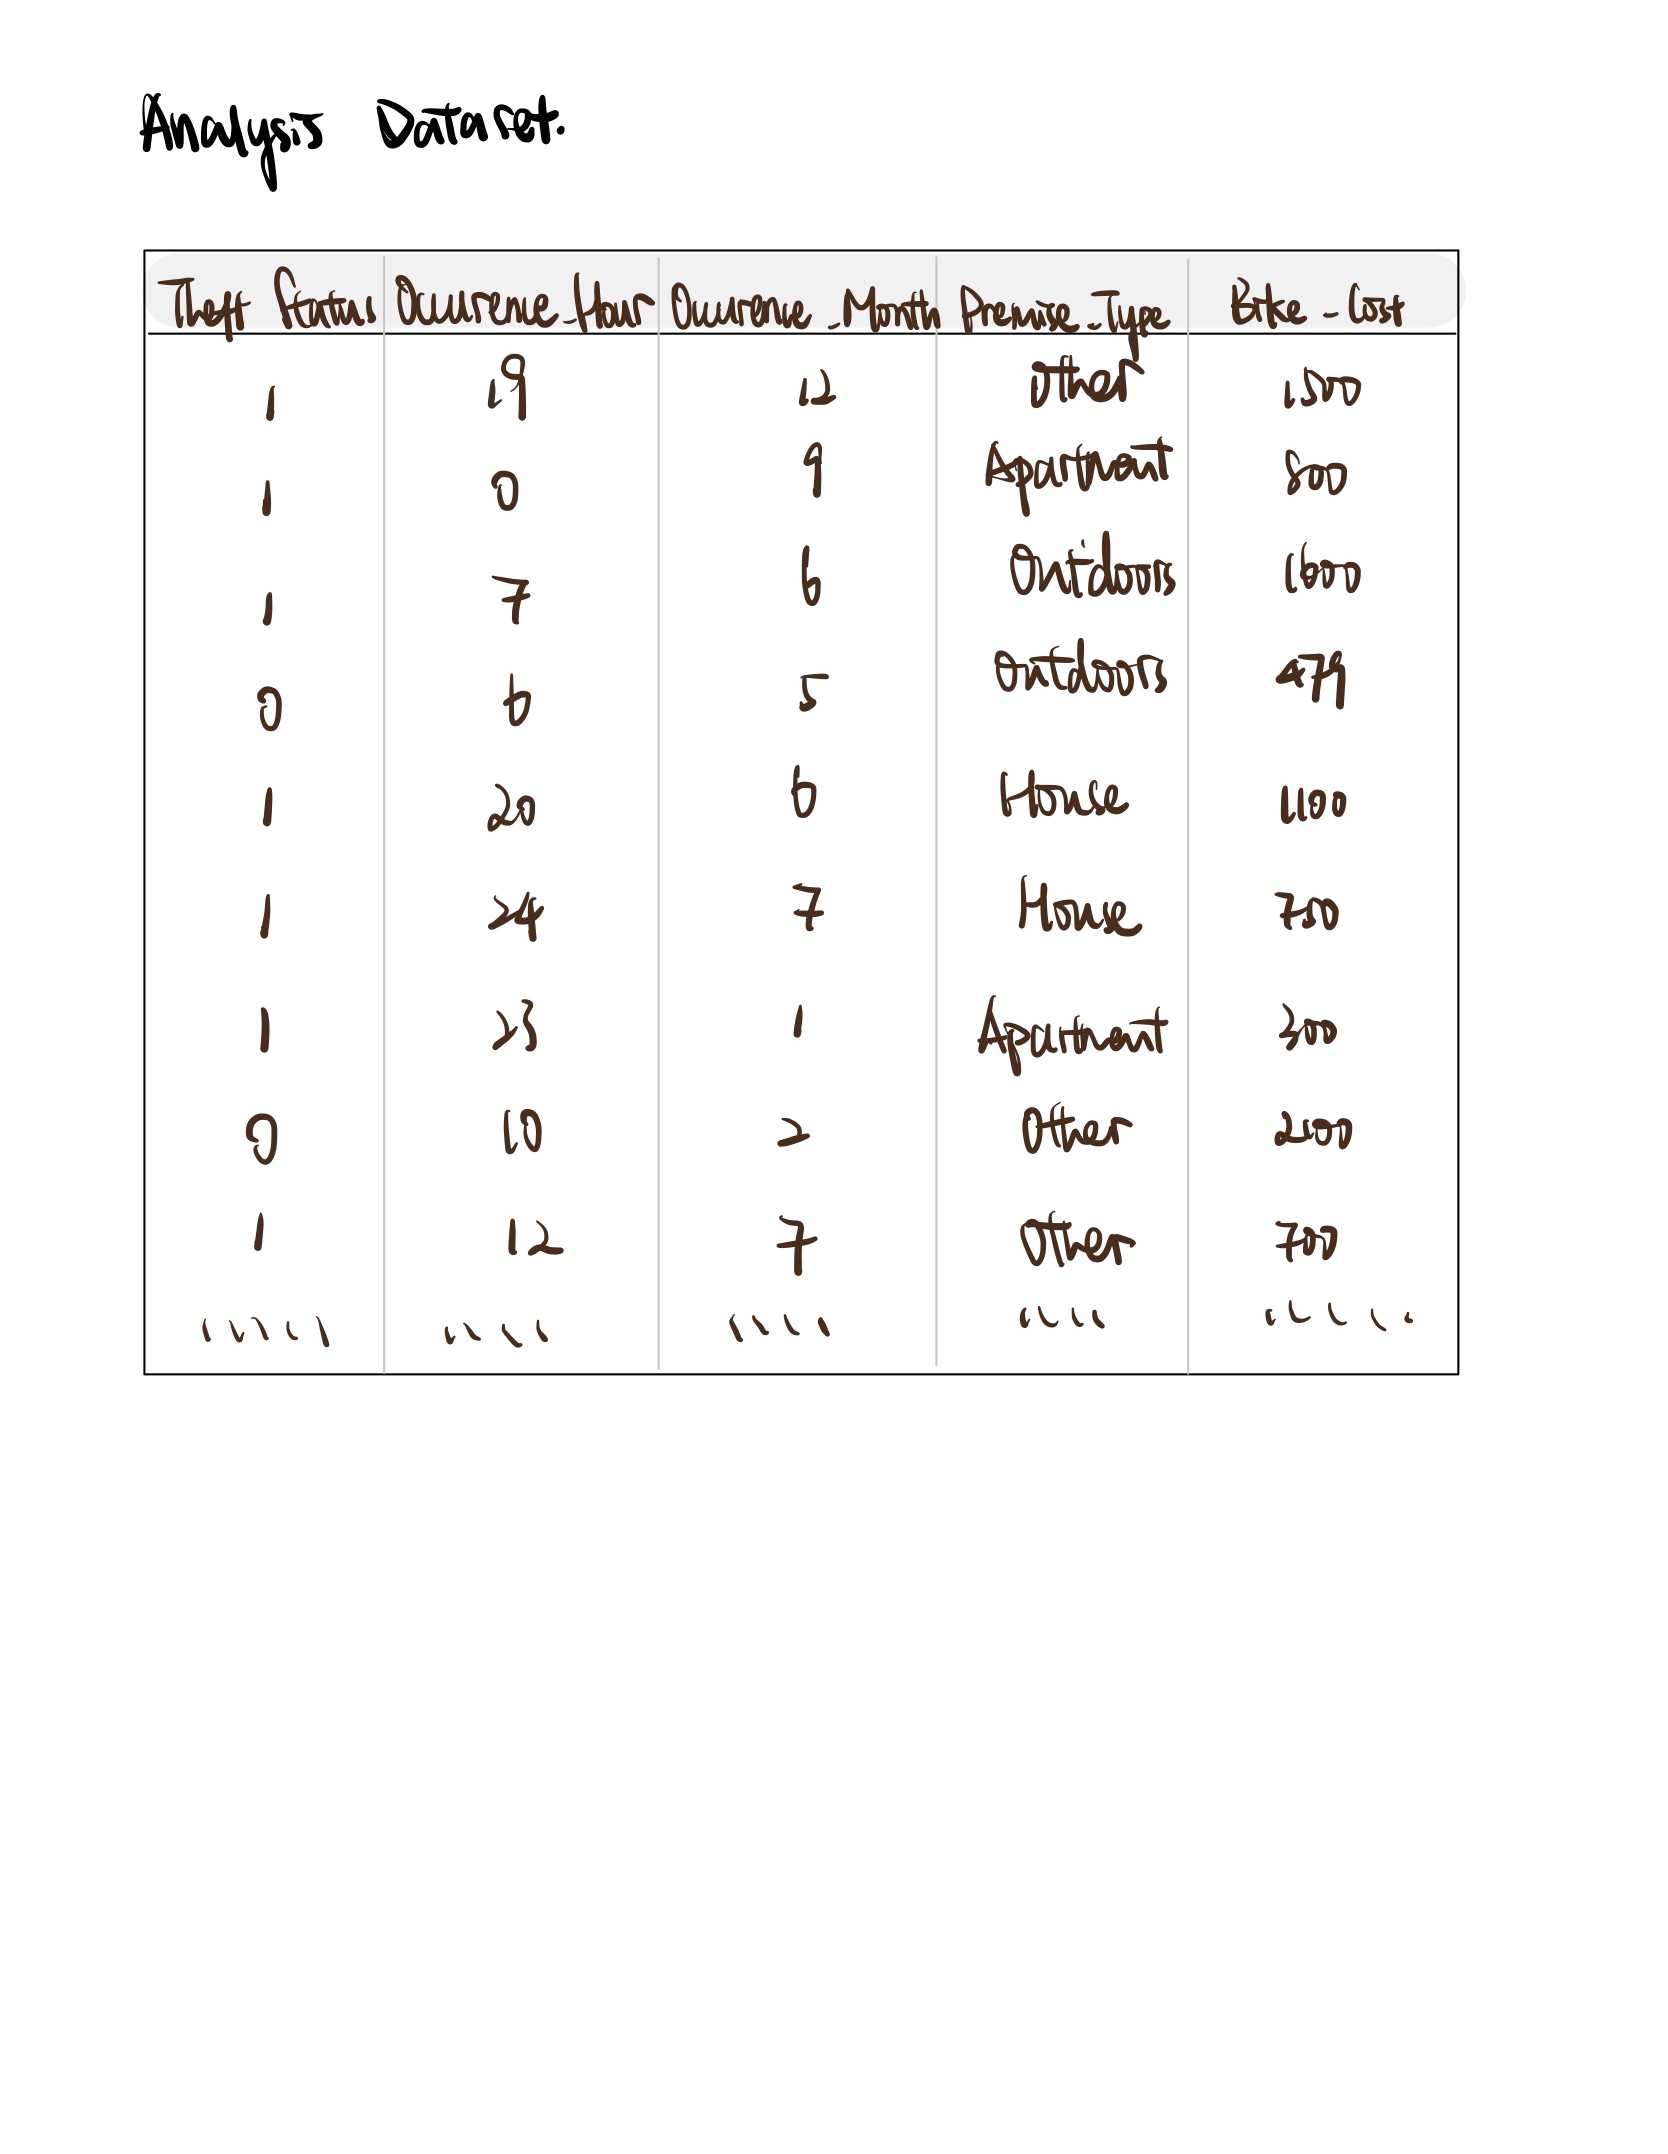 Analysis Dataset.
Theft Status Occurence_Hour Occurence_Month Premise_Type Bike_Cost
1 19 12 Other 1500
1 0 9 Apartment 800
1 7 6 Outdoors 1600
0 6 5 Outdoors 479
1 20 6 House 1100
1 24 7 House 750
1 23 1 Apartment 300
0 10 2 Other 2100
1 12 7 Other 700